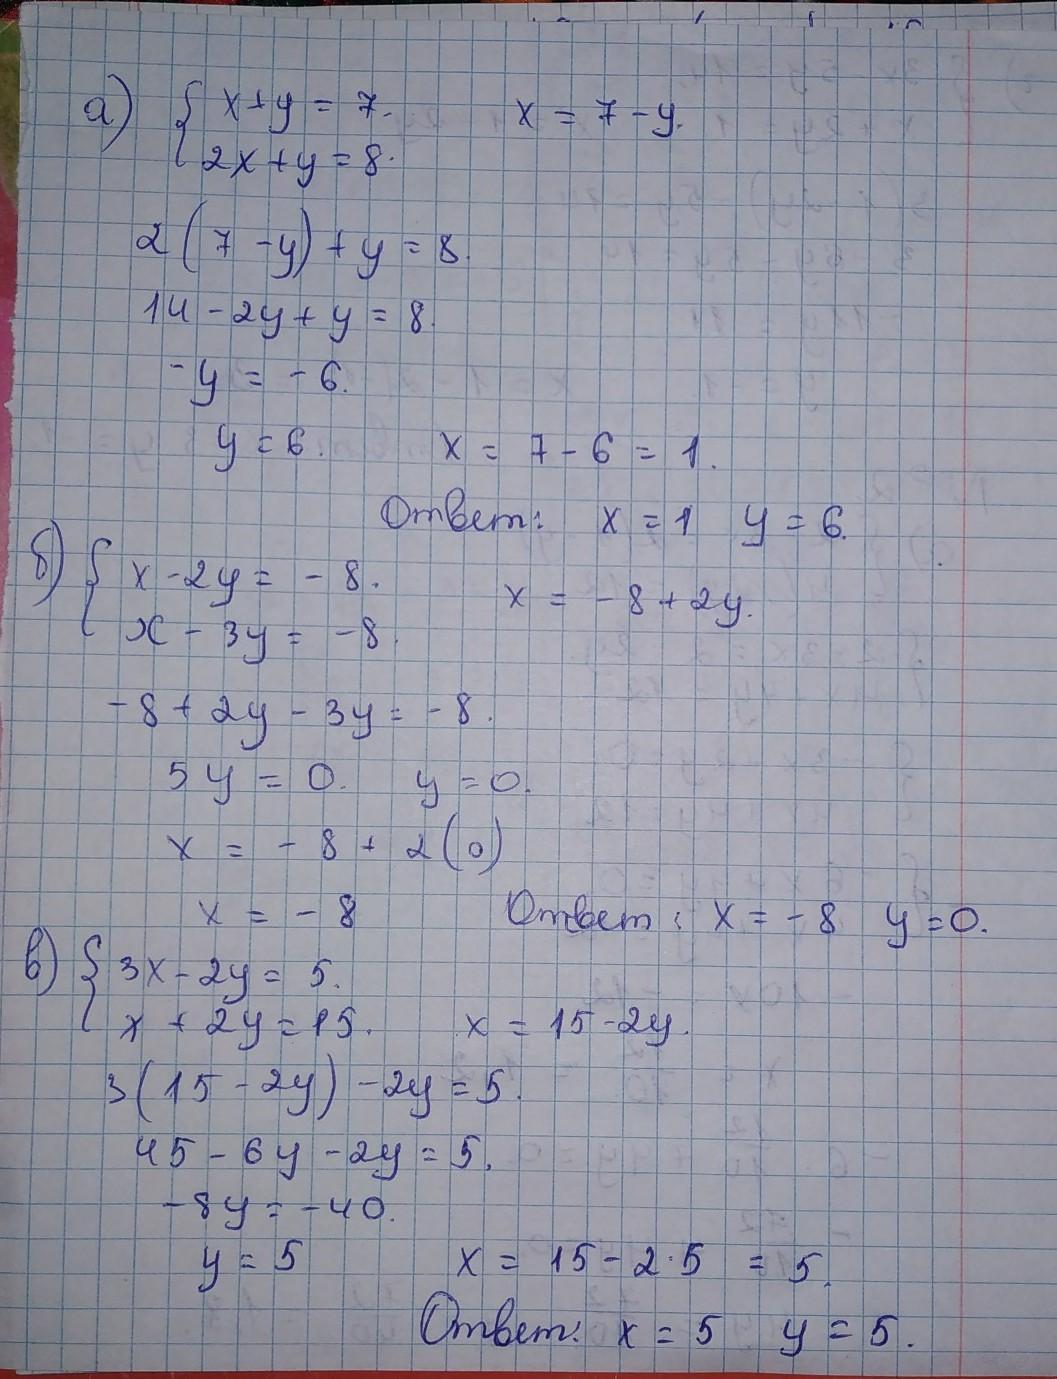 а) { x+y = 7. x = 7 - y.
2x+y = 8.
2(7 - y) + y = 8.
14 - 2y + y = 8.
-y = -6.
y = 6. x = 7 - 6 = 1.
Ответ: x = 1 y = 6.
б) { x - 2y = - 8. x = - 8 + 2y.
x - 3y = - 8.
- 8 + 2y - 3y = - 8.
5y = 0. y = 0.
x = - 8 + 2(0)
x = - 8 Ответ: x = - 8 y = 0.
в) { 3x - 2y = 5.
x + 2y = 15. x = 15 - 2y.
3(15 - 2y) - 2y = 5.
45 - 6y - 2y = 5.
- 8y = - 40.
y = 5 x = 15 - 2·5 = 5.
Ответ: x = 5 y = 5.